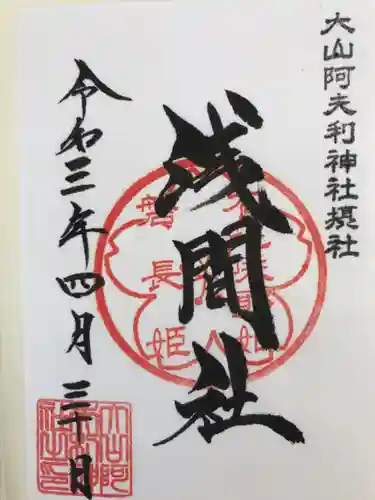 大山阿夫利神社摂社
浅間社
磐長姫
令和三年四月三十日